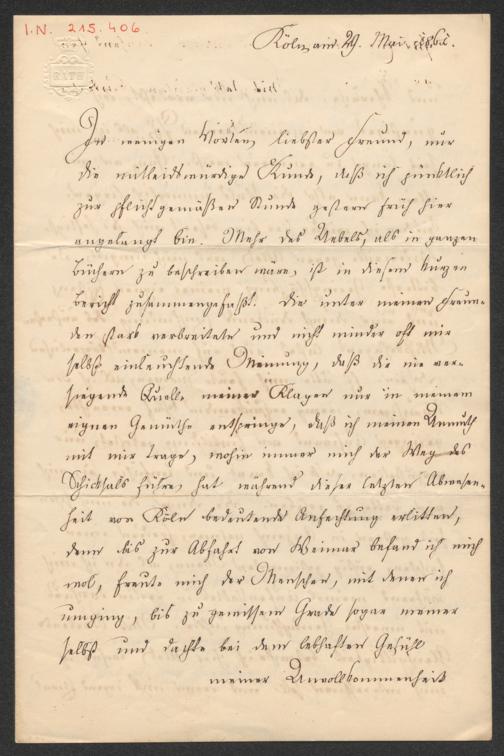 I.N. 215.406
BATH
Köln, am 29. Mai
In wenigen Worten, liebster Freund, nur
die mitleidswürdige Kunde, daß ich pünktlich
zur pflichtgemäßen Stunde gestern früh hier
angelangt bin. Mehr des Uebels, als in ganzen
Büchern zu beschreiben wäre, ist in diesem kurzen
Bericht zusammengefaßt. Die unter meinen Freun-
den stark verbreitete und nicht minder oft mir
selbst einleuchtende Meinung, daß die nie ver-
siegende Quelle meiner Klagen nur in meinem
eignen Gemüthe entspringe, daß ich meinen Unmuth
mit mir trage, wohin immer mich der Weg des
Schicksals führe, hat während dieser letzten Abwesen-
heit von Köln bedeutende Anfechtung erlitten,
denn bis zur Abfahrt von Weimar befand ich mich
wol, freute mich der Menschen, mit denen ich
umging, bis zu gewissem Grade sogar meiner
selbst und dachte bei dem lebhaften Gefühl
meiner Unvollkommenheit